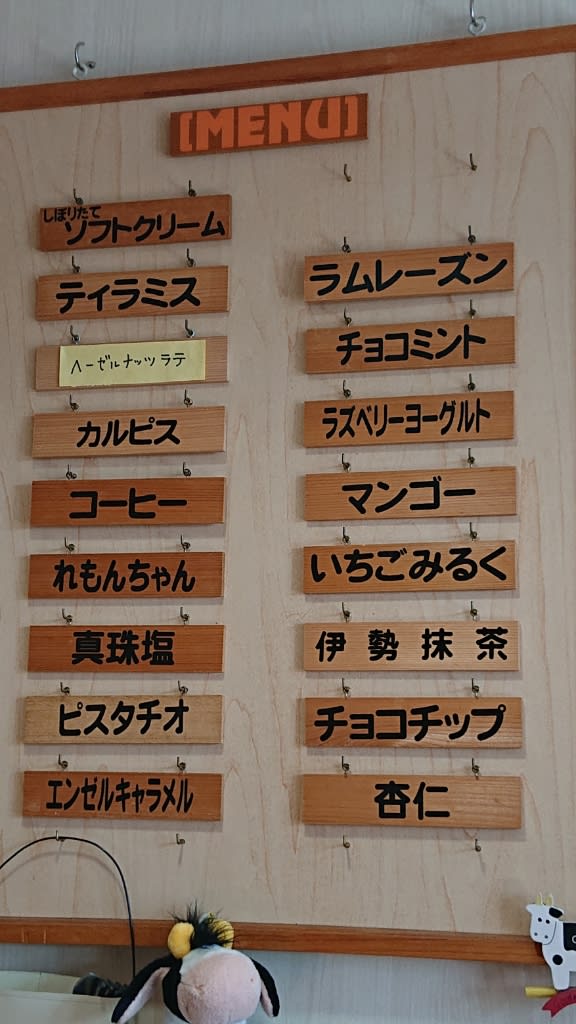 [MENU]
しぼりたて
ソフトクリーム
ティラミス
ヘーゼルナッツラテ
カルピス
コーヒー
れもんちゃん
真珠塩
ピスタチオ
エンゼルキャラメル
ラムレーズン
チョコミント
ラズベリーヨーグルト
マンゴー
いちごみるく
伊勢抹茶
チョコチップ
杏仁